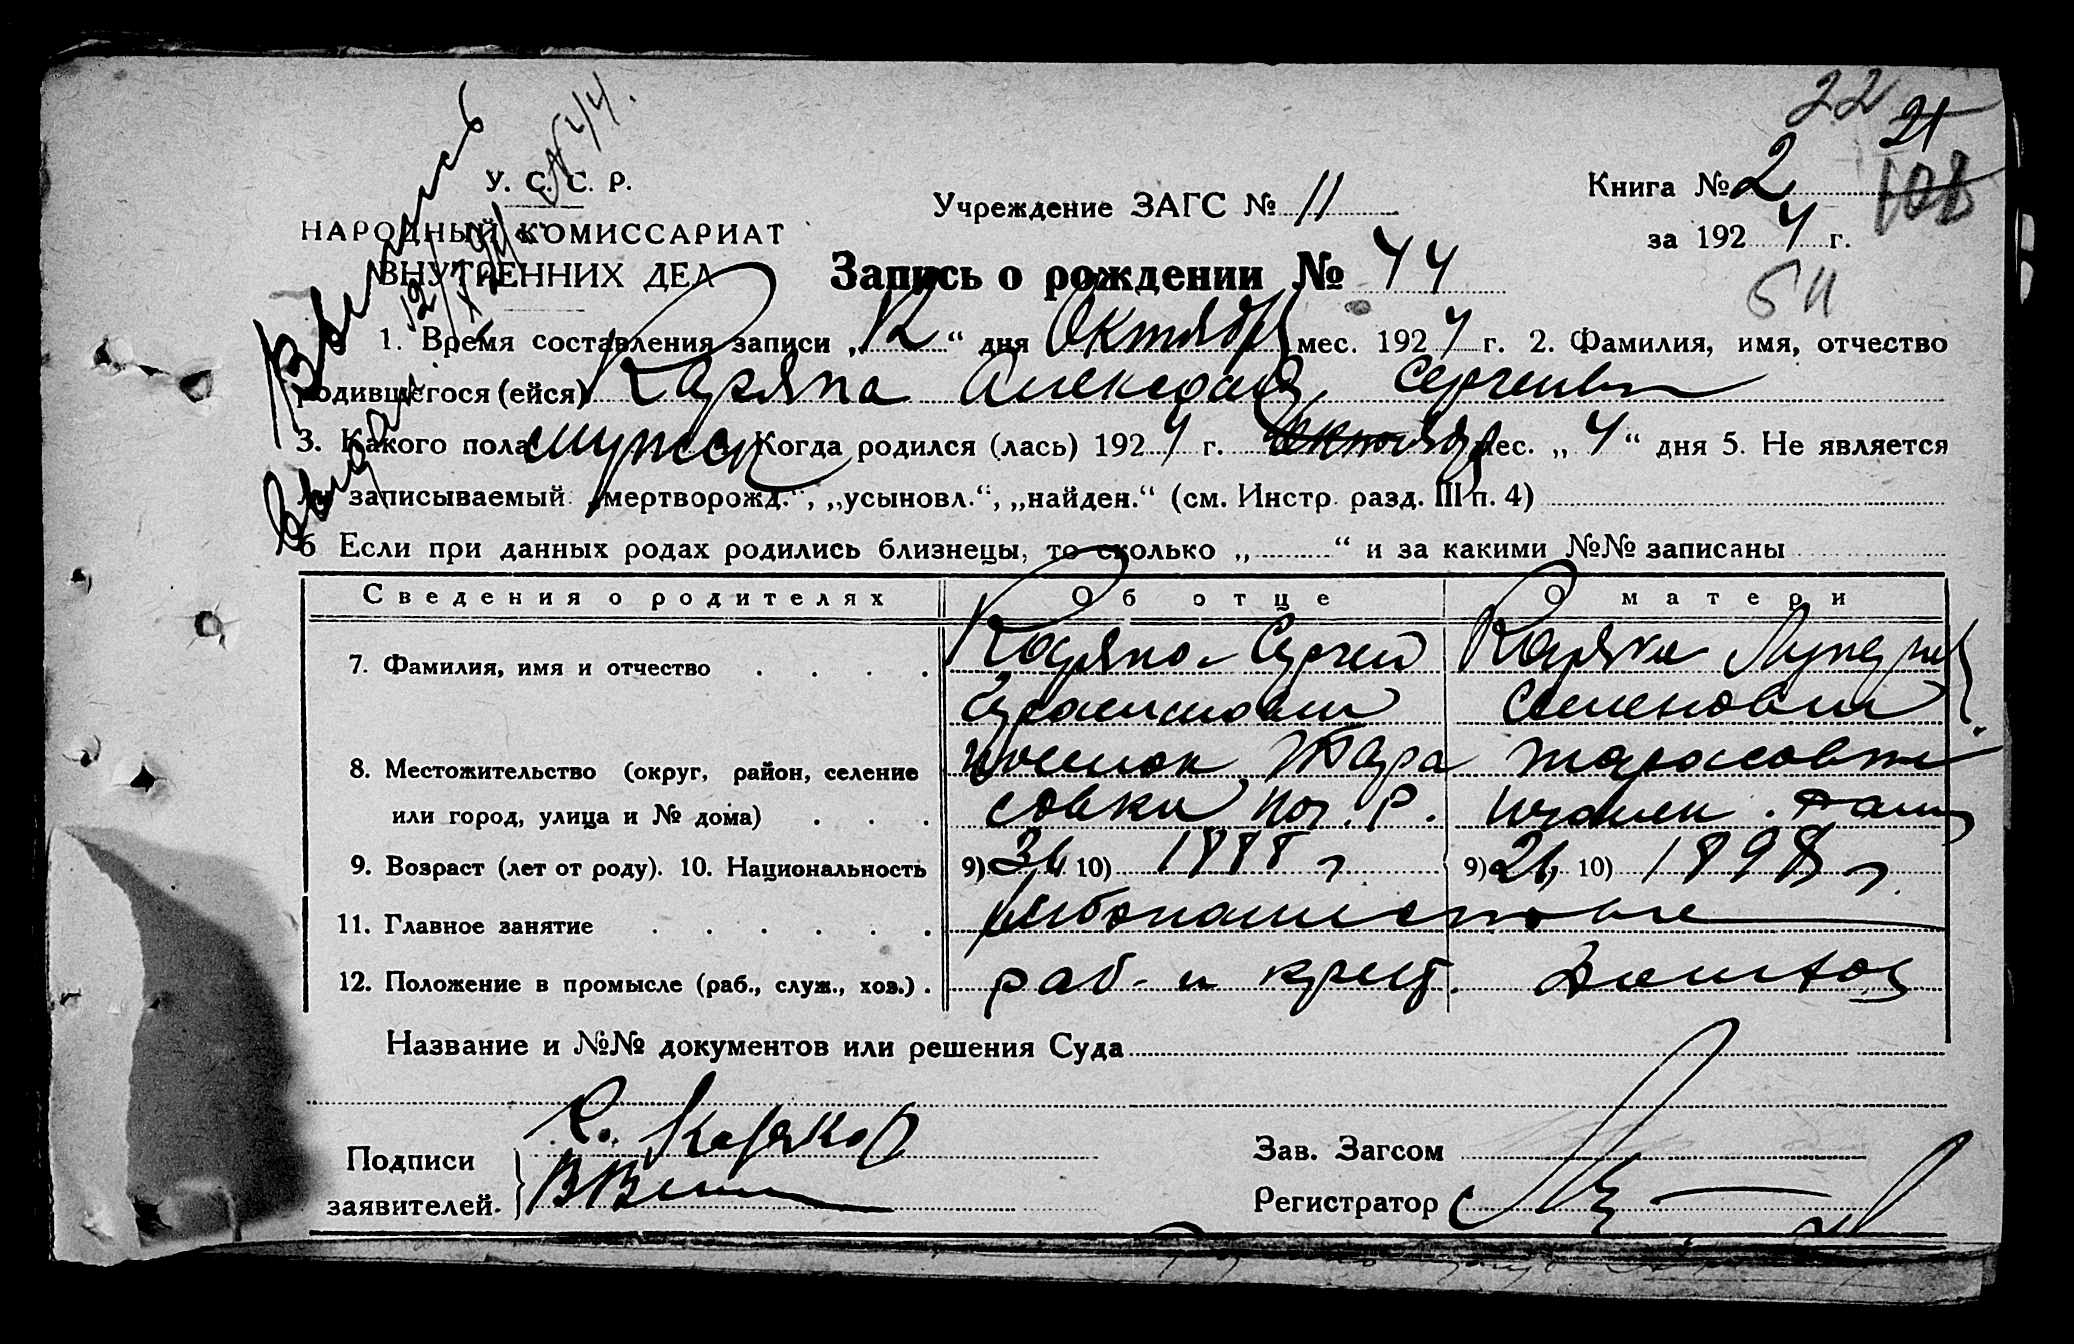 22
21
108
Выпись
Выдан 12/X 1924 № 44.
У. С. С. Р.
НАРОДНЫЙ КОМИССАРИАТ
ВНУТРЕННИХ ДЕЛ
Учреждение ЗАГС № 11
Книга № 2
за 1924 г.
511
Запись о рождении № 44
1. Время составления записи „12“ дня Октября мес. 1924 г. 2. Фамилия, имя, отчество
родившегося (ейся) Каряка Александр Сергеевич
3. Какого пола мужск Когда родился (лась) 1924 г. Октября мес. „4“ дня 5. Не является
записываемый „мертворожд.“, „усыновл.“, „найден.“ (см. Инстр. разд. III п. 4)
6 Если при данных родах родились близнецы, то сколько „ “ и за какими №№ записаны
Сведения о родителях Об отце О матери
7. Фамилия, имя и отчество Каряка Сергей Каряка
Семеновна
8. Местожительство (округ, район, селение поселок Тара
или город, улица и № дома) совка
9. Возраст (лет от роду). 10. Национальность 9) 36 10) 1888 г 9) 26 10) 1898 г.
11. Главное занятие хлебопашество
12. Положение в промысле (раб., служ., хоз.) раб. и
Название и №№ документов или решения Суда
Подписи
заявителей.
Зав. Загсом
Регистратор